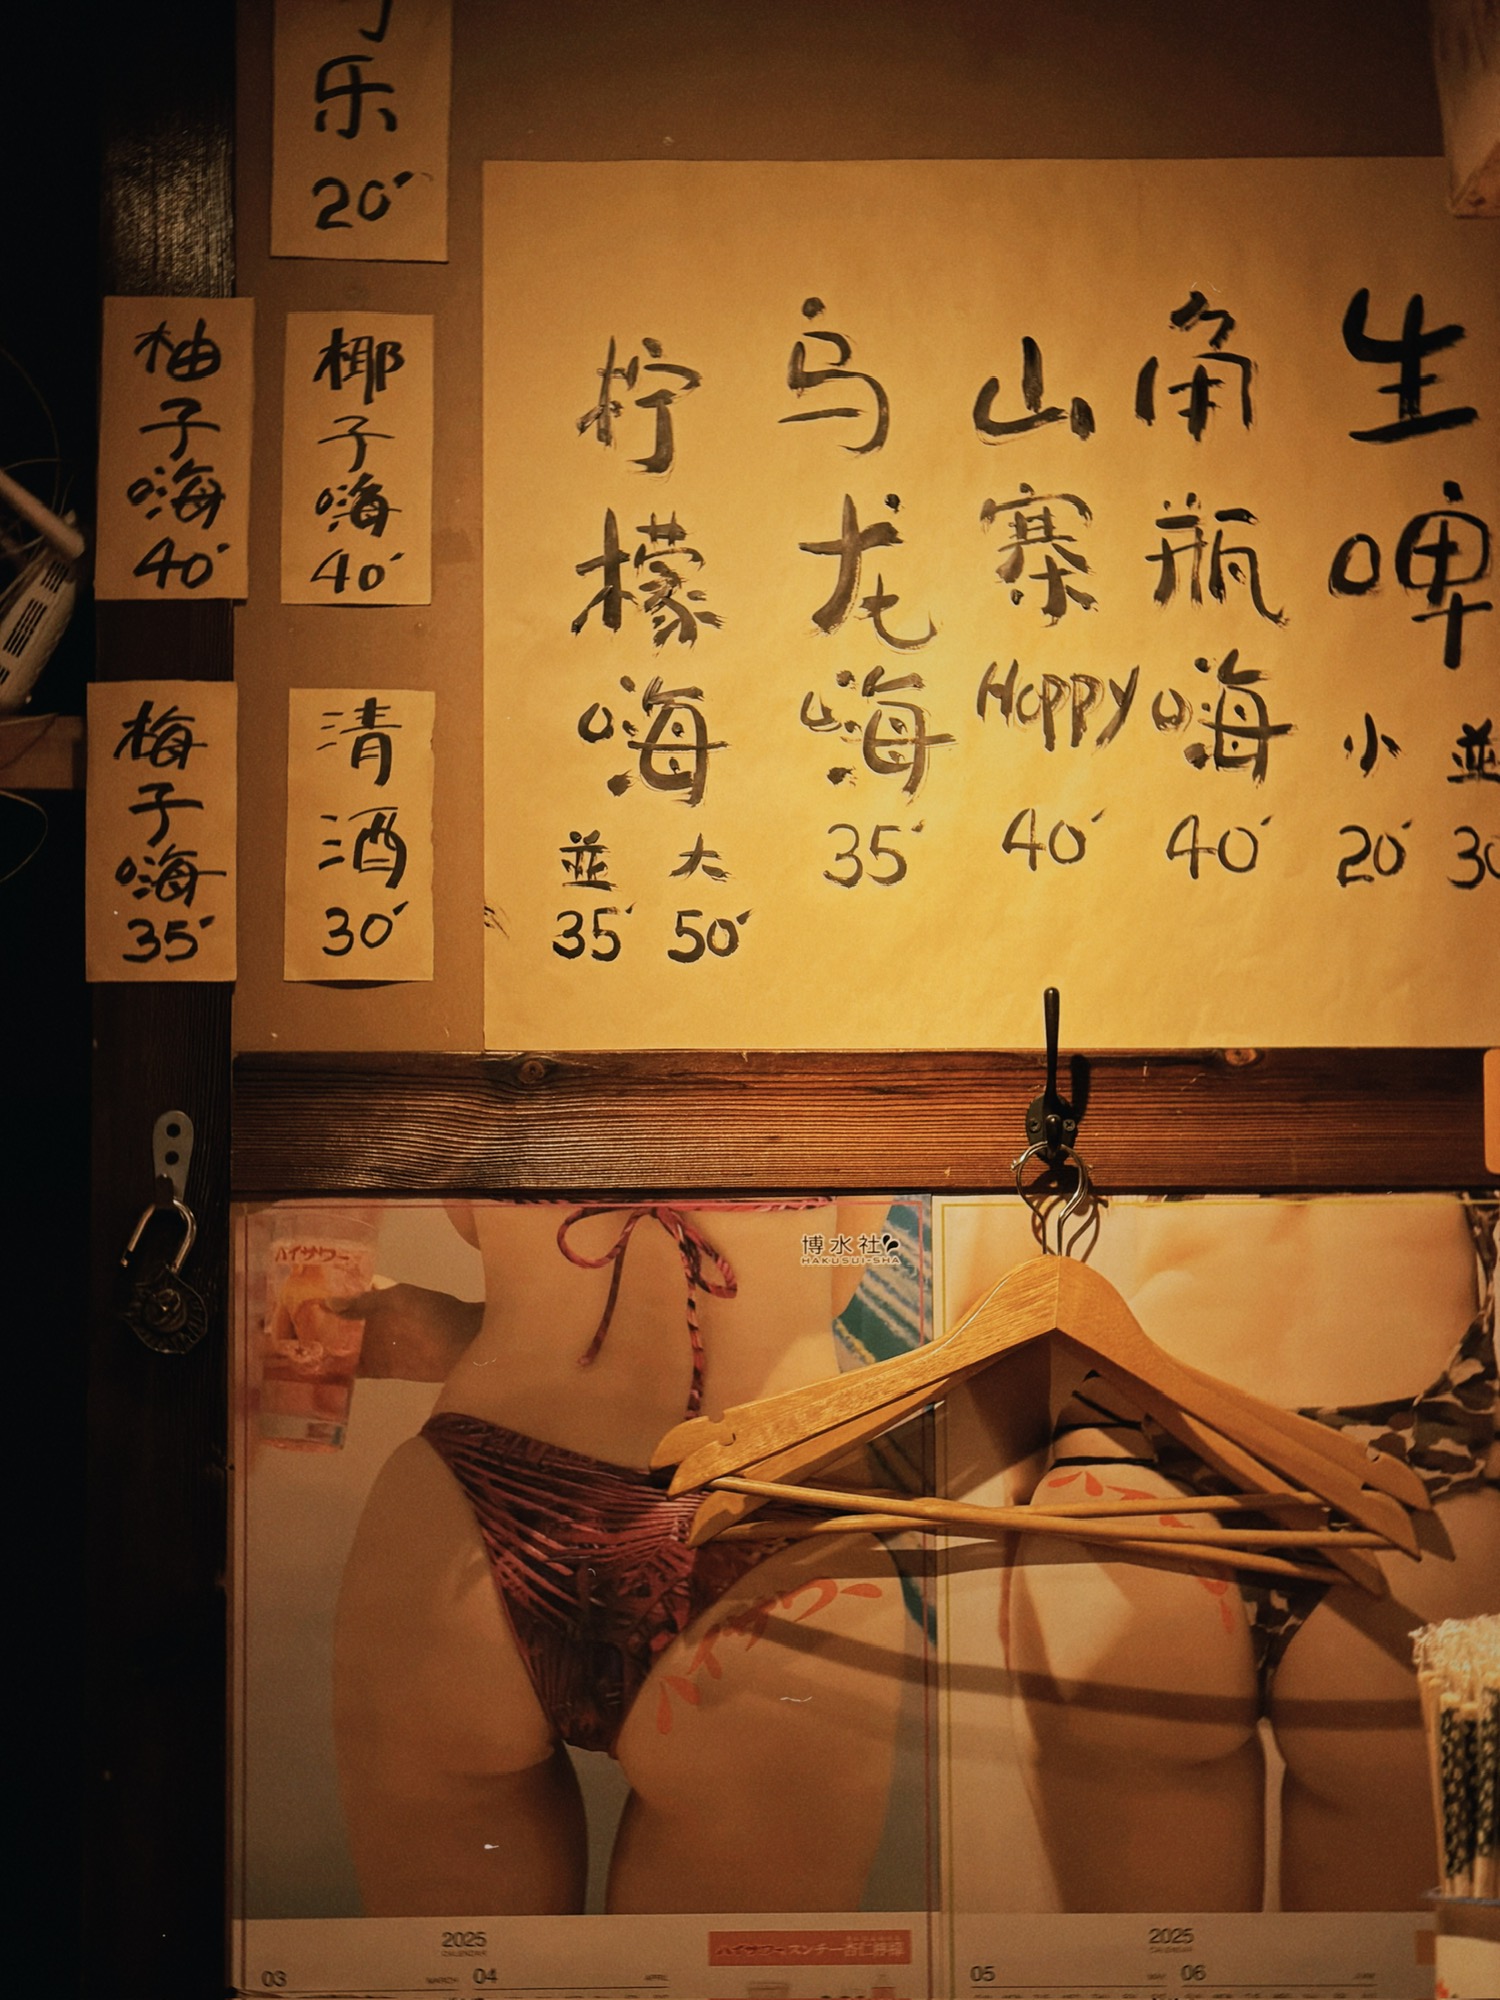 乐
20
柚子嗨
40
椰子嗨
40
梅子嗨
35
清酒
30
柠檬嗨
並 大
35 50
乌龙嗨
35
山寨Hoppy
40
角瓶嗨
40
生啤
小 並
20 30
ハイサワー
博水社
HAKUSUI-SHA
ハイサワー
2025
CALENDAR
03 MARCH 04 APRIL
ハイサワースンチー杏仁檸檬
2025
CALENDAR
05 MAY 06 JUNE